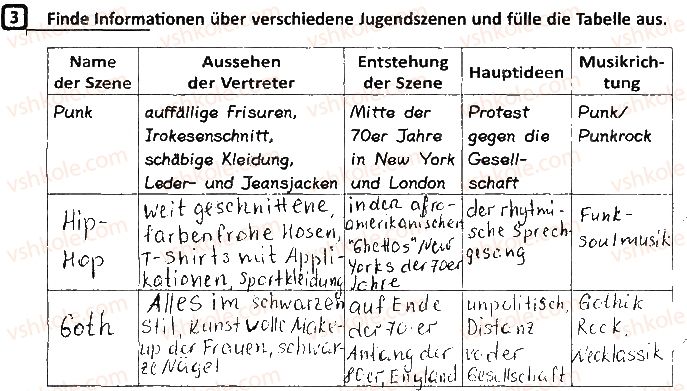 3 Finde Informationen über verschiedene Jugendszenen und fülle die Tabelle aus.
Name der Szene
Aussehen der Vertreter
Entstehung der Szene
Hauptideen
Musikrich-
tung
Punk
auffällige Frisuren,
Irokesenschnitt,
schäbige Kleidung,
Leder- und Jeansjacken
Mitte der
70er Jahre
in New York
und London
Protest
gegen die
Gesell-
schaft
Punk/
Punkrock
Hip-
Hop
weit geschnittene,
farbenfrohe Hosen,
T-Shirts mit Appli-
kationen, Sportkleidung
in den afro-
amerikanischen
"Ghettos" New
Yorks der 70er
Jahre
der rhytmi-
sche Sprech-
gesang
Funk-
soulmusik
Goth
Alles im schwarzen
Stil, kunstvolle Make-
up der Frauen, schwar-
ze Nägel
auf Ende
der 70-er
Anfang der
80er, England
unpolitisch,
Distanz
Gesellschaft
Gothik
Rock,
Necklassik
vshkole.com